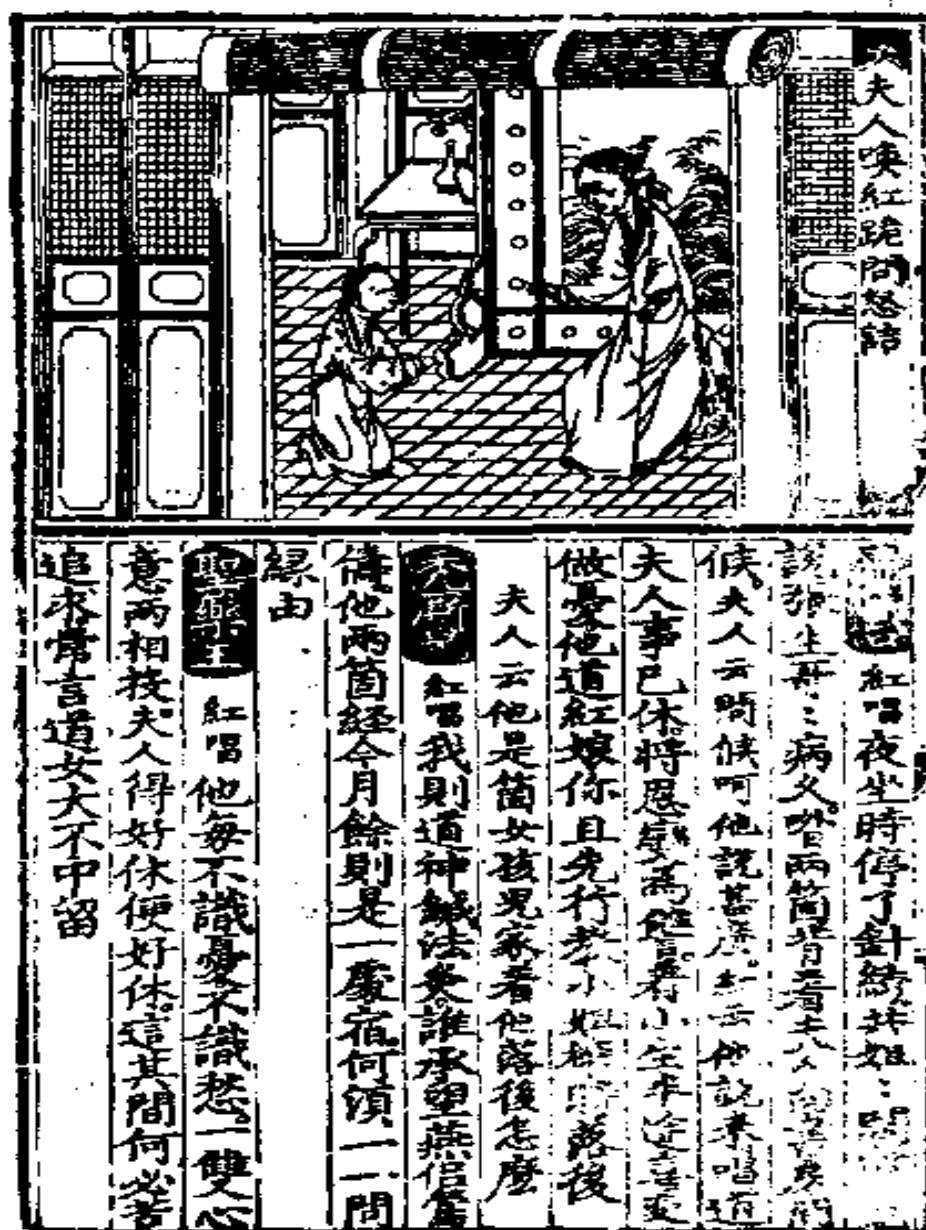 夫人喚紅跪問怒語
紅唱夜坐時停了針綉共姐〻閑
說張生哥〻病久咱兩箇背着夫人向書房
候夫人云問候呵他說甚広紅云他說來唱道
夫人事已休將恩變爲讐着小生半途喜變
做憂他道紅娘你且先行教小姐權時落後
夫人云他是箇女孩児家着他落後怎麽
紅唱我則道神鍼法灸誰承望燕侶鶯
儔他兩箇經今月餘則是一處宿何須一一問
緣由
聖藥王 紅唱他每不識憂不識愁一雙心
意兩相投夫人得好休便好休這其間何必苦
追求常言道女大不中留